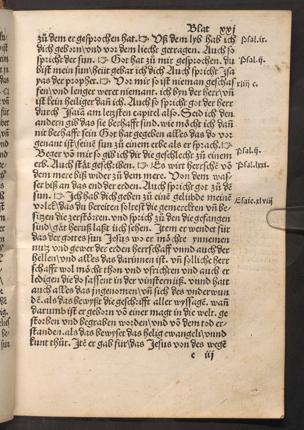 Blat xxj
zů dem er gesprochen hat. ☞ Vß dem lyb hab ich
dich geborn/vnd vor dem liecht getragen. Auch so
spricht der sun. ☞ Got hat zů mir gesprochen. du
bist mein sun/heüt hab ich dich Auch spricht Jsa
yas der prophet. ☞ Vor mir so ist nieman geschaf
fen/vnd lenger weret niemant. ich byn der herr/vñ
ist kein heiliger dañ ich. Auch so spricht got der herr
durch Jsaiā am letzsten capitel also. Seid ich den
andern gib das sie berhafft sind. wie möcht ich dañ
nit berhafft sein Got hat gegeben alles das do vor
genant ist/seinē sun zů einem erbe als er sprach. ☞
Beger võ mir so gib ich dir die geschlecht zů einem
erb. Auch stät geschriben. ☞ Es wirt herschē võ
dem mere biß wider zů dem mere. Von dem was-
ser biß an das end der erden. Auch spricht got zů dē
sun. ☞ Jch hab dich geben zů eine gelübnd meinē
volck/das du bereiten solest die gemerckten vñ be-
sitzen die zerstörten. vnd sprich zů den die gefangen
sind/gät heruß laßt üch sehen. Jtem er wendet für
das der gottes sun Jesus wo er möcht ynnemen
nutz vnd gewer der erden herschafft vnnd auch der
hellen/vnd alles das darinnen ist. vñ sölliche herr
schafft wol möcht thon vnd vsrichten vnnd auch er
ledigen die do sassent in der vinsternüß. vnnd hatt
auch alles das yngenomen/vñ sich des vnderwun
dē. als das bewyßt die geschrifft aller wyssagē. wañ
darumb ist er geborn võ einer magt in die welt. ge
storben vnd begraben worden/vnd võ dem tod er-
standen. als das bewyset das helig ewangeli/vnnd
kunt thüt. Jtē er gab für/das Jesus von des wegē
c iij
Psal.ix.
Psal.ij.
xliij c.
Psal.ij.
Psal.lxxi.
Esaie.xlviij